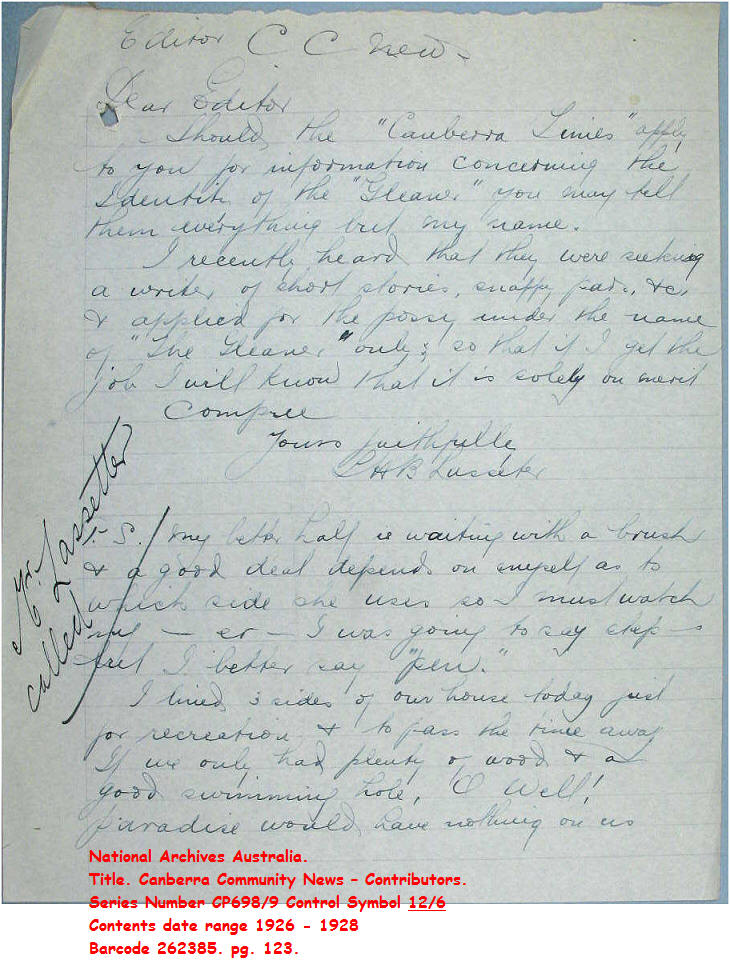 Editor C C New
Dear Editor
Should the "Canberra Times" apply
to you for information concerning the
Identity of the "Gleaner" you may tell
them everything but my name.
I recently heard that they were seeking
a writer of short stories, snappy pars, &c
& applied for the possy under the name
of "The Gleaner" only; so that if I get the
job I will know that it is solely on merit
Compree
Yours faithfully
L H B Lasseter
P.S. My better half is waiting with a brush
& a good deal depends on myself as to
which side she uses so I must watch
my — er — I was going to say step —
but I better say "pen."
I lined 3 sides of our house today just
for recreation & to pass the time away
If we only had plenty of wood & a
good swimming hole, O Well!
paradise would have nothing on us
Mr. Lassetter
called
National Archives Australia.
Title. Canberra Community News - Contributors.
Series Number CP698/9 Control Symbol 12/6
Contents date range 1926 - 1928
Barcode 262385. pg. 123.